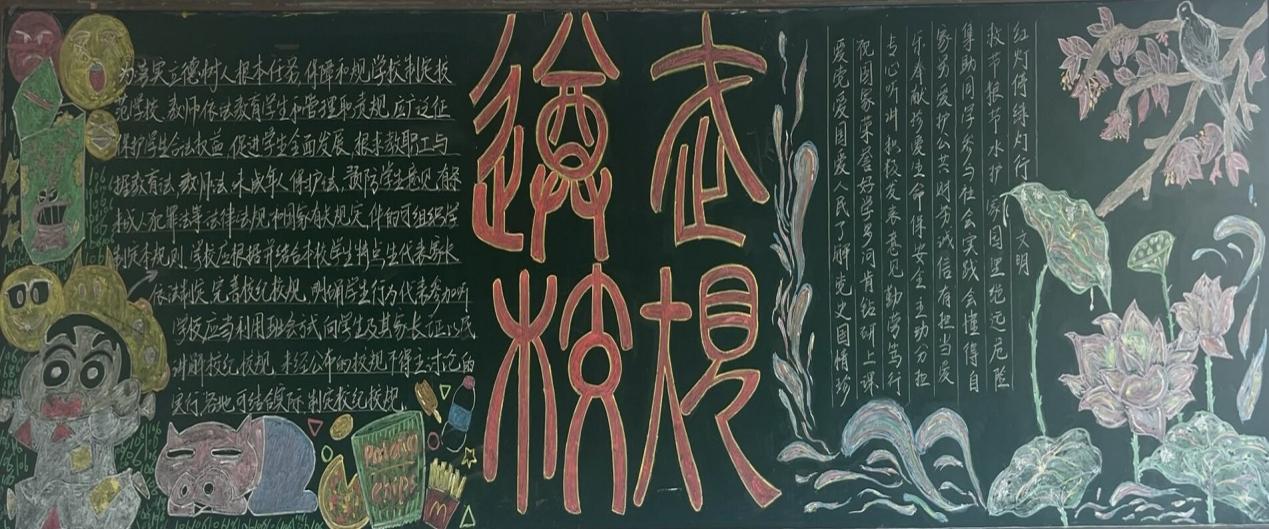 为落实立德树人根本任务,保障和规,学校制定校
范学校、教师依法教育学生和管理职责规,应广泛征
保护学生合法权益,促进学生全面发展,根求教职工与
据教育法、教师法、未成年人保护法、预防学生意见,有条
未成人犯罪法等法律法规和国家有关规定,件的可组织学
制定本规则,学校应根据并结合本校学生特点生代表家长
依法制定完善校纪校规,明确学生行为代表参加听
学校应当利用班会方式向学生及其家长证以或
讲解校纪校规,未经公布的校规不得主讨论的
实行各地可结合实际制定校纪校规
遵 走
校 规
红灯停绿灯行 文明
救节粮节水护家园黑绝远危险
集助同学参与社会实践会懂得自
家务爱护公共财物诚信有担当爱
乐奉献珍爱生命保安全主动分担
专心听讲积极发表意见勤劳笃行
祝国家荣誉好学多问肯钻研上课
爱党爱国爱人民了解党史国情珍
Potato
chips